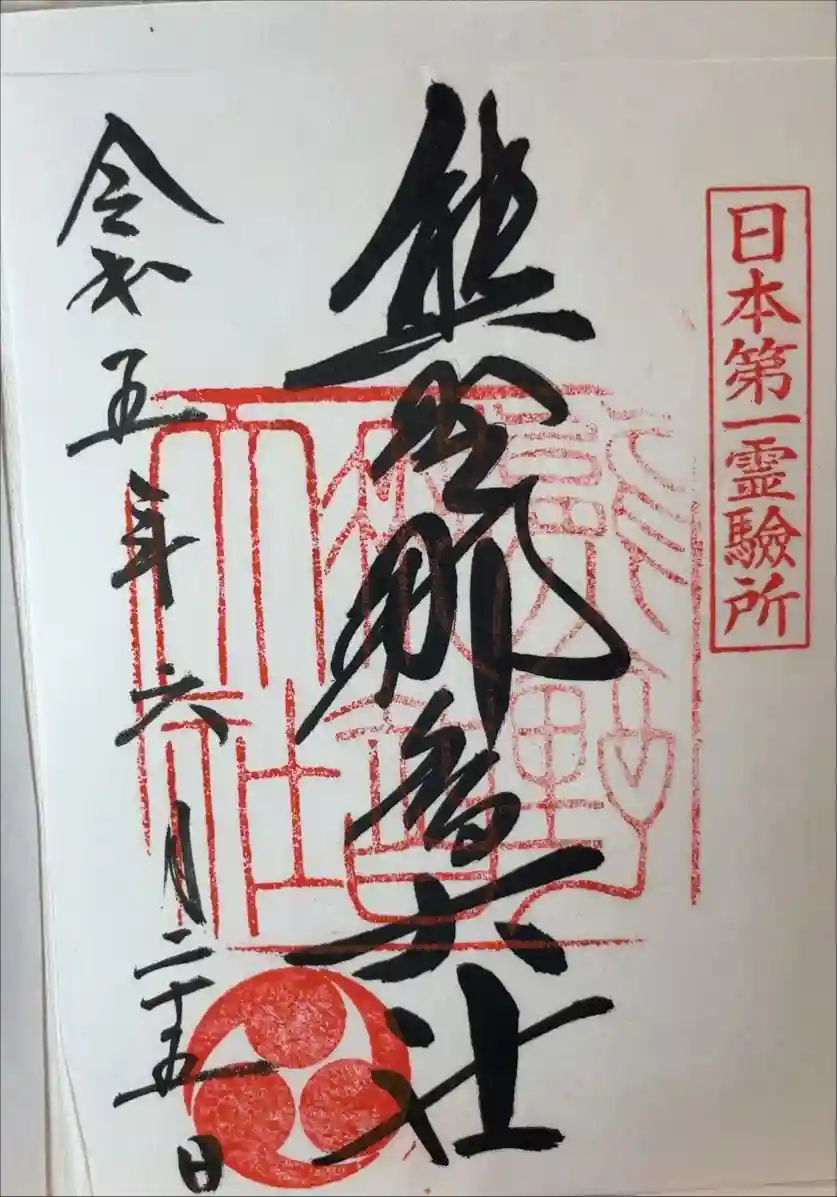 日本第一霊驗所
熊野那智大社
令和五年六月二十五日